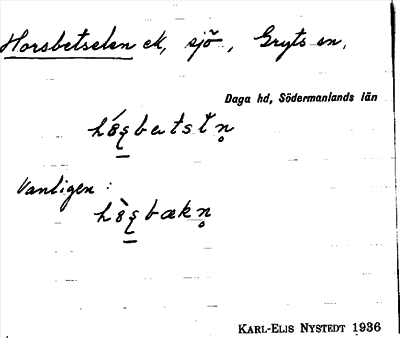 Horsbetselen ek, sjö, Gryts sn,
Daga hd, Södermanlands län
Vanligen :
KARL-ELIS NYSTEDT 1936